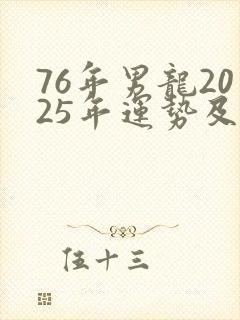 76年男龍20
25年運勢及
伍十三